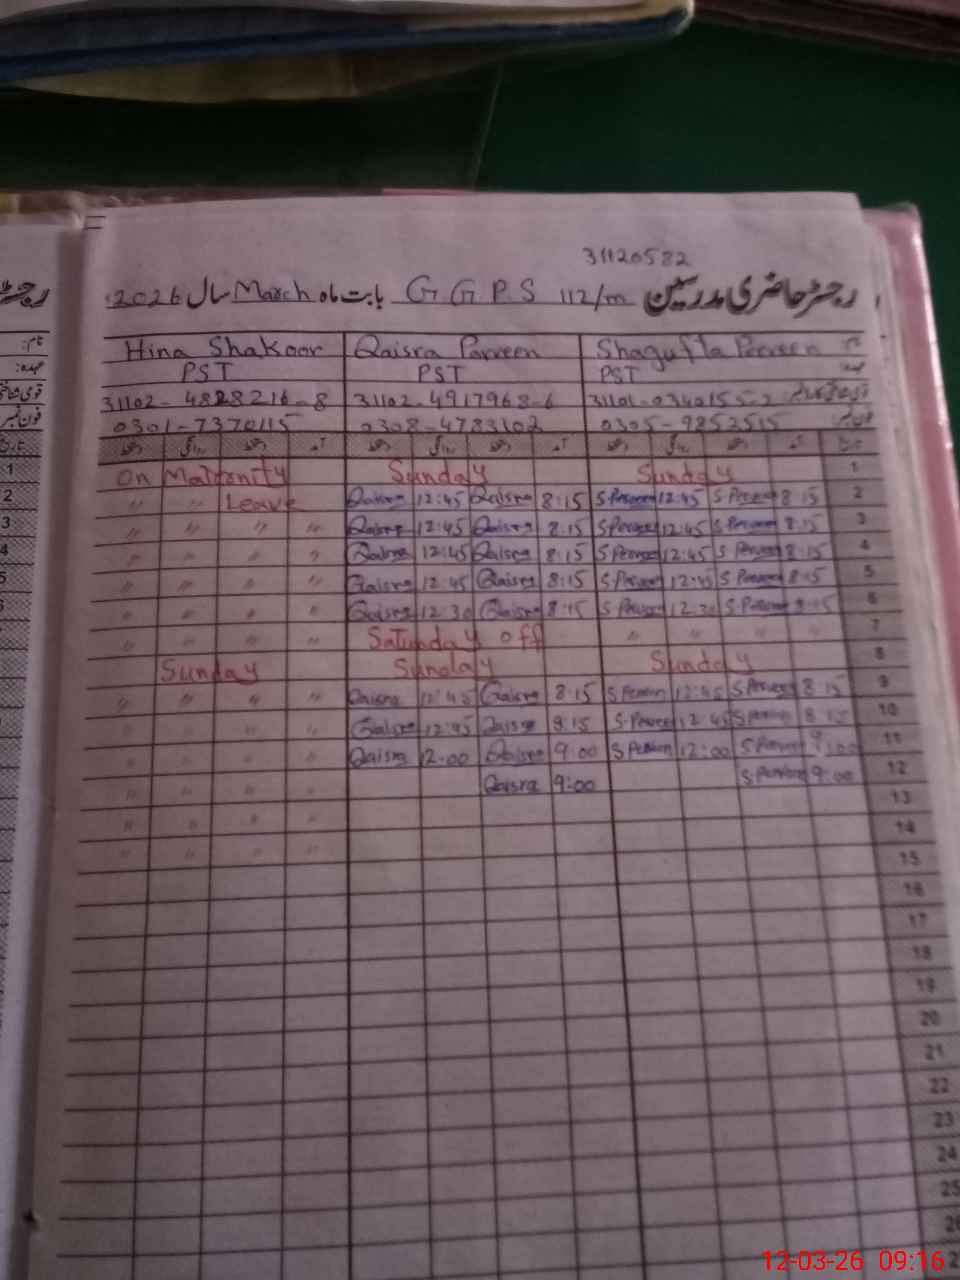 31120582
رجسٹر حاضری مدرسین G G P.S 112/m بابت ماہ March سال 2026
نام: Shagufta Perveen Qaisra Parveen Hina Shakoor
عہدہ: PST PST PST
31102-4828216-8 31102-4917968-6 31101-0340155-2
فون نمبر 0301-7370115 0308-4783102 0305-9852515
تاریخ آمد دستخط روانگی دستخط آمد دستخط روانگی دستخط آمد دستخط روانگی دستخط
On Maternity Sunday Sunday 1
" " Leave Qaisra 12:45 Qaisra 8:15 S.Perveen 12:45 S.Perveen 8:15 2
" " " " Qaisra 12:45 Qaisra 8:15 S.Perveen 12:45 S.Perveen 8:15 3
" " " " Qaisra 12:45 Qaisra 8:15 S.Perveen 12:45 S.Perveen 8:15 4
" " " " Qaisra 12:45 Qaisra 8:15 S.Perveen 12:45 S.Perveen 8:15 5
" " " " Qaisra 12:30 Qaisra 8:15 S.Perveen 12:30 S.Perveen 8:15 6
" " " " Saturday off " " " " 7
Sunday Sunday Sunday 8
" " " " Qaisra 12:45 Qaisra 8:15 S.Perveen 12:45 S.Perveen 8:15 9
" " " " Qaisra 12:45 Qaisra 8:15 S.Perveen 12:45 S.Perveen 8:15 10
" " " " Qaisra 12:00 Qaisra 9:00 S.Perveen 12:00 S.Perveen 9:00 11
" " " " Qaisra 9:00 S.Perveen 9:00 12
" " " " 13
" " " " 14
15
16
17
18
19
20
21
22
23
24
25
26
12-03-26 09:16